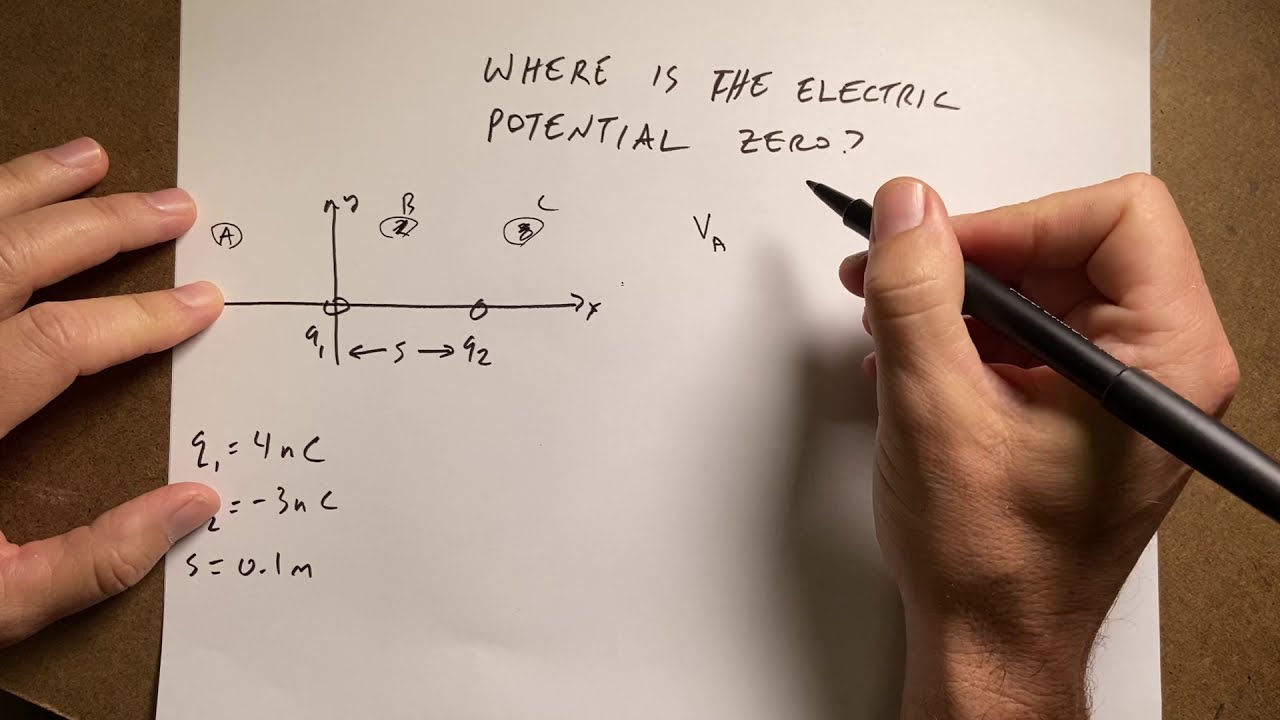 WHERE IS THE ELECTRIC
POTENTIAL ZERO?
y
A B C
V_A
x
q₁ ← s → q₂
q₁ = 4nC
₂ = -3nC
s = 0.1m